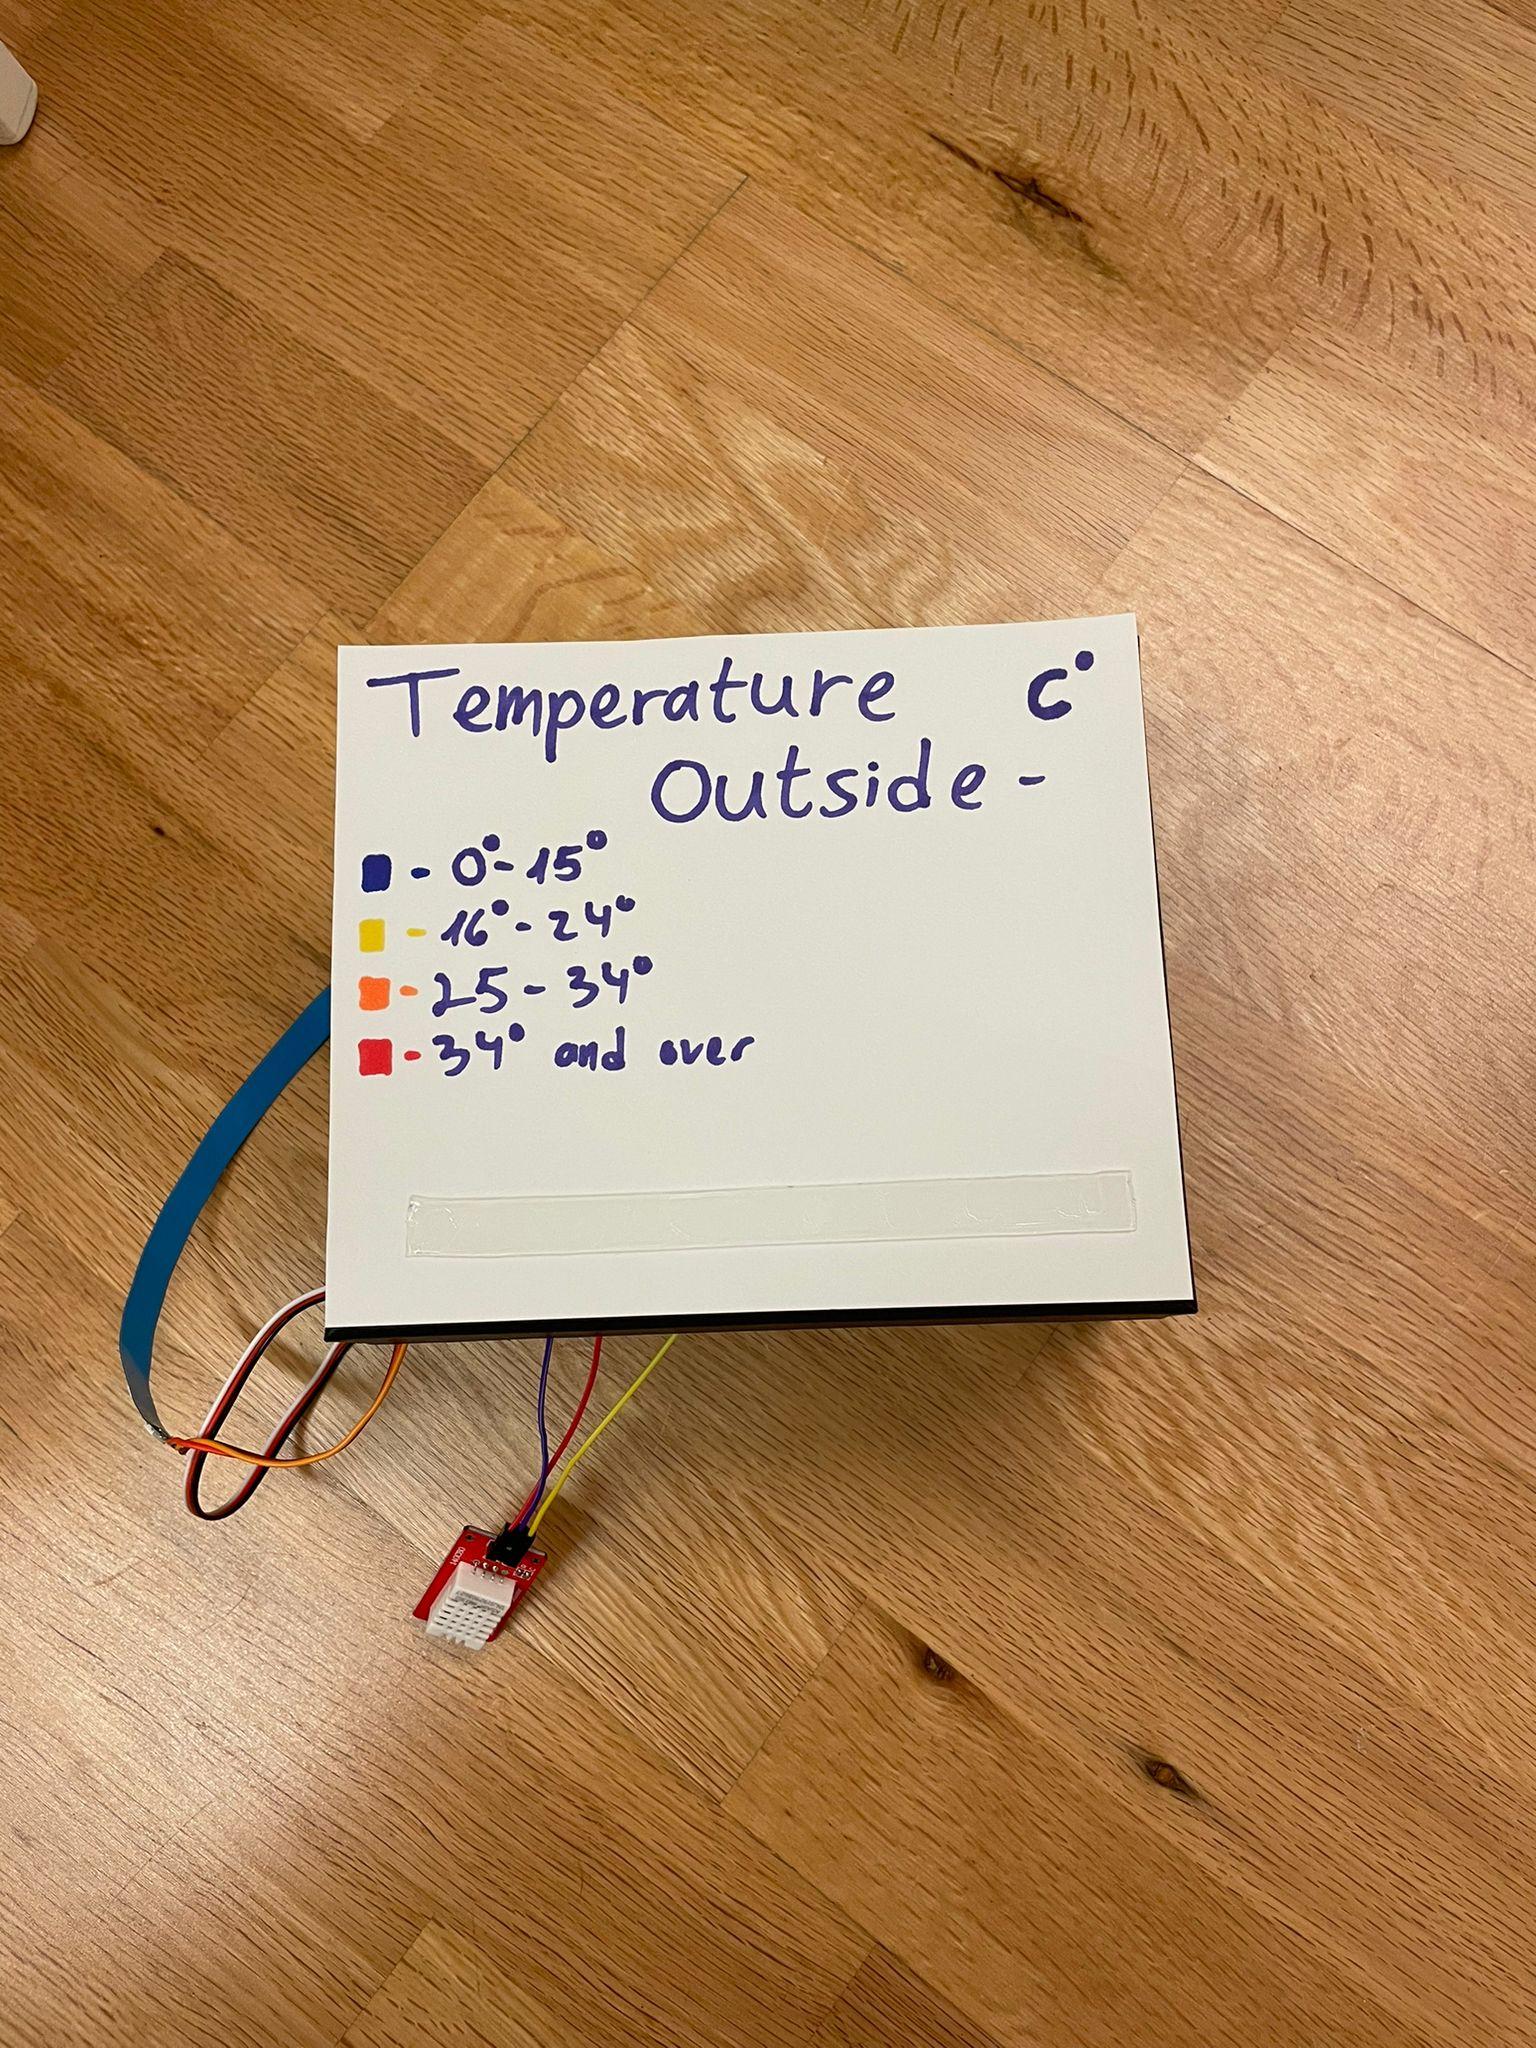 Temperature C°
Outside -
- 0°-15°
- 16°-24°
- 25-34°
- 34° and over